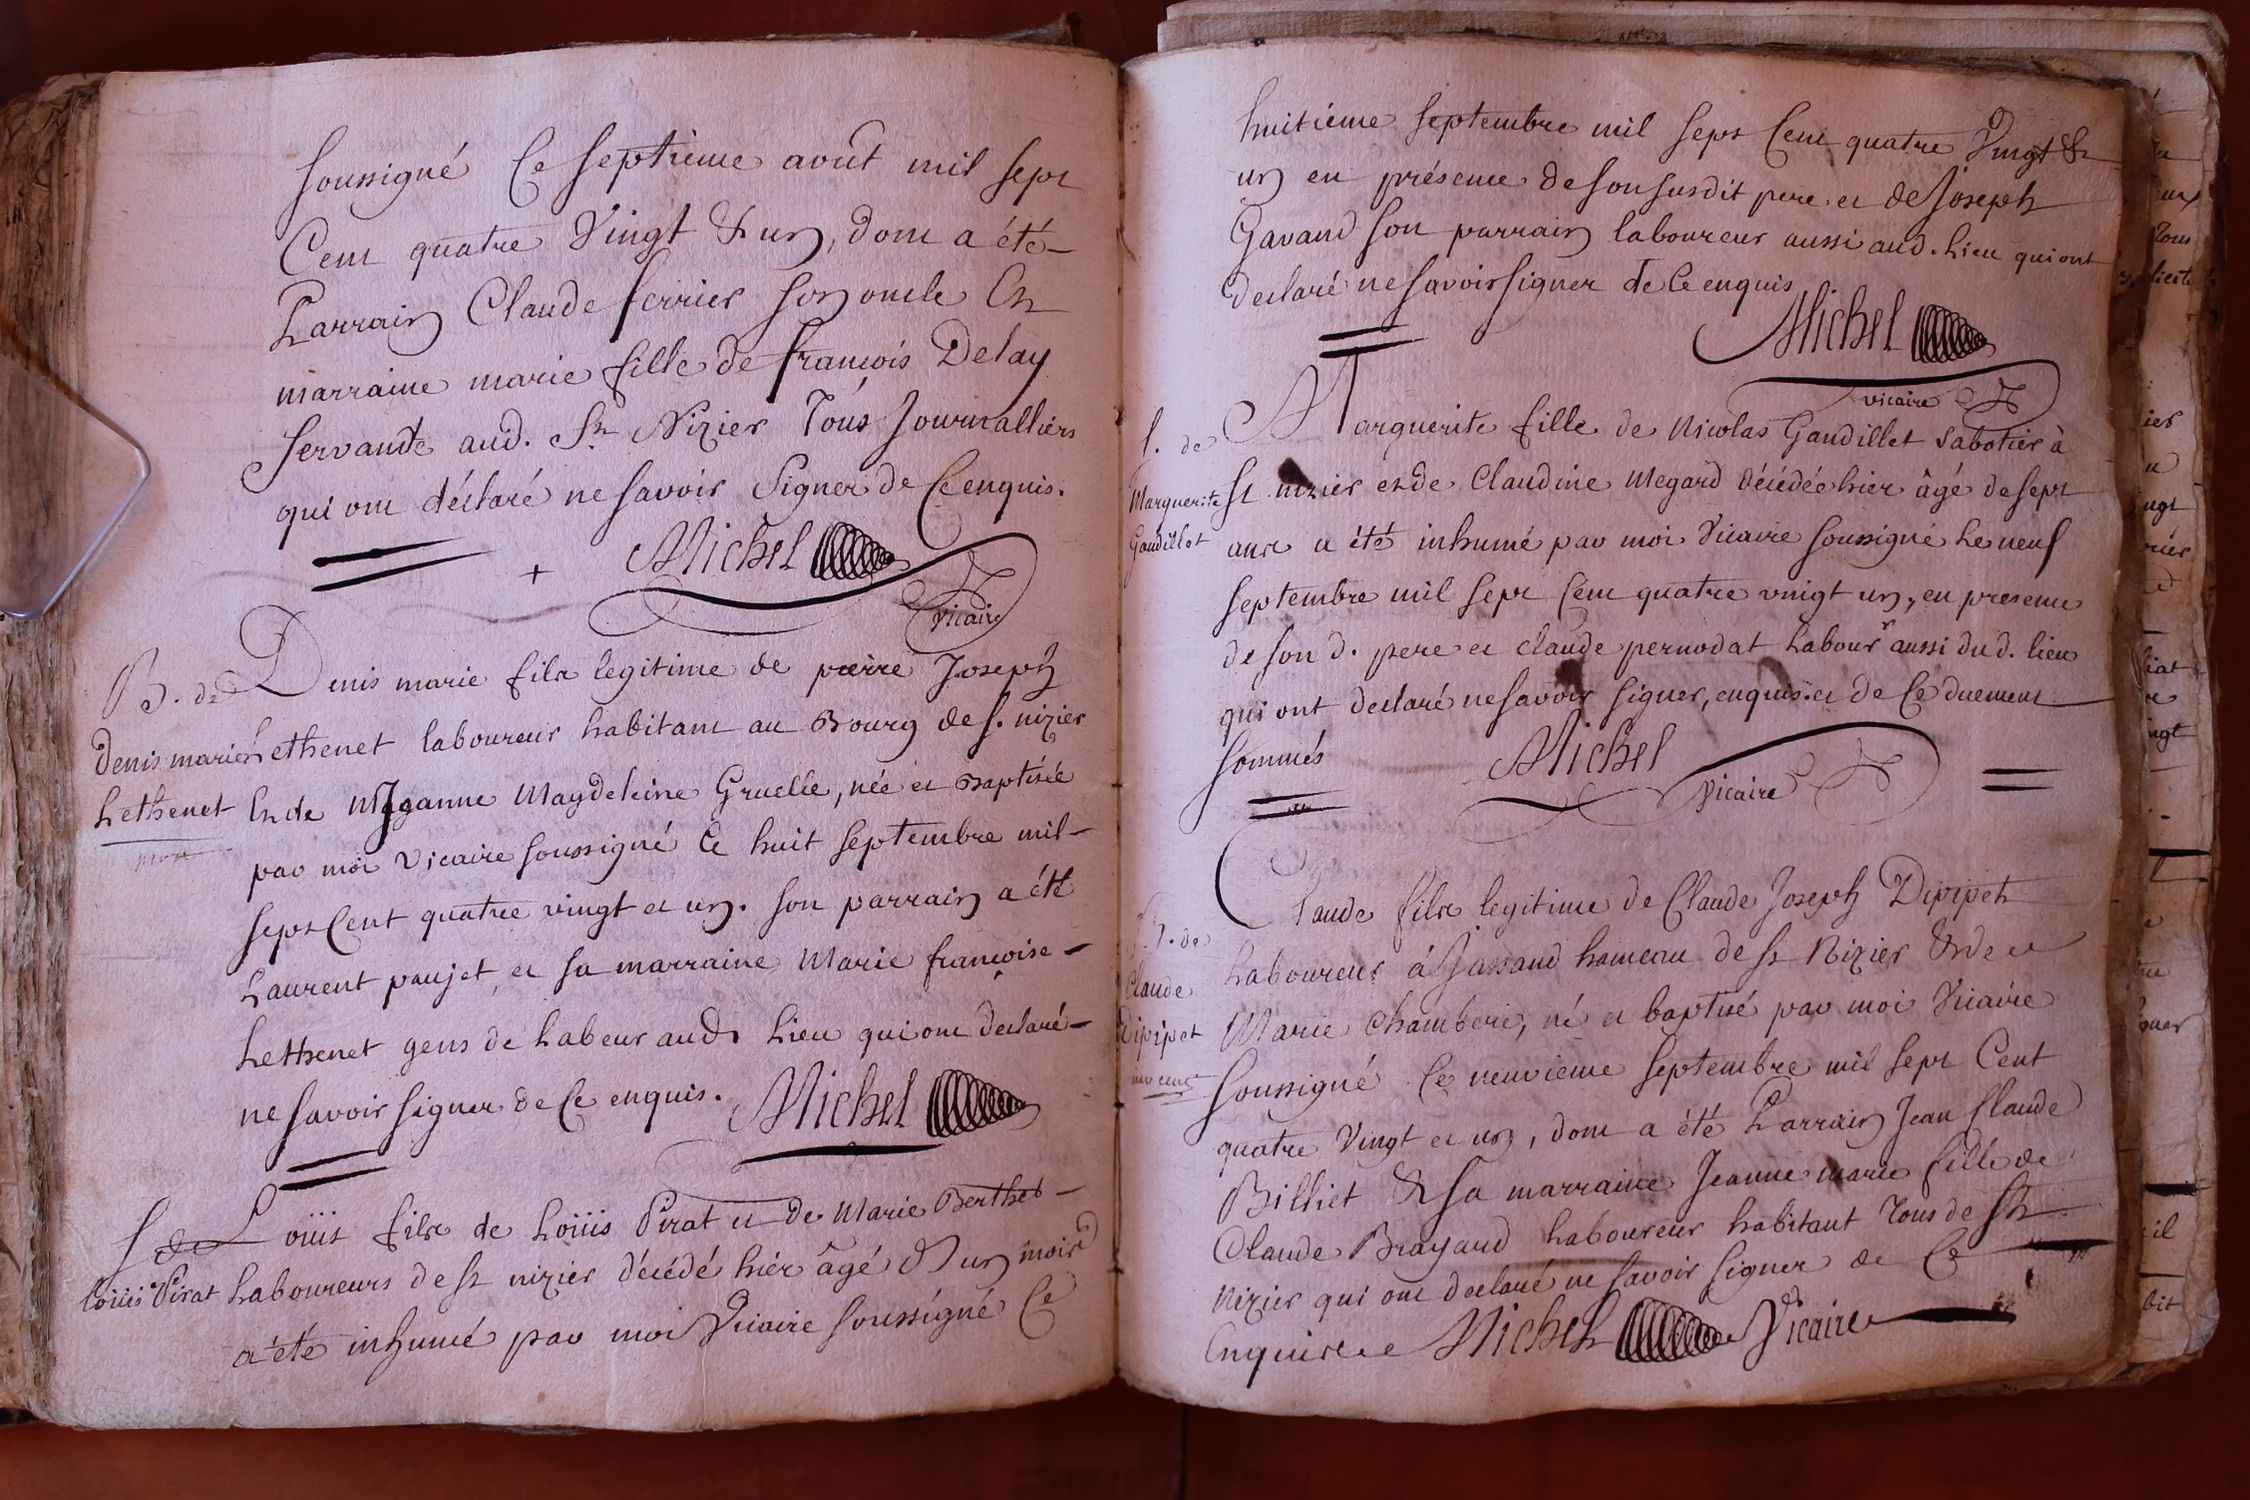 soussigné ce septieme avoût mil sept
Cent quatre Vingt & un, dont a été
Parrain Claude ferrier son oncle Et
marraine marie fille de françois Delay
servante aud. St Nizier Tous Journalliers
qui ont déclaré ne savoir Signer de Ce enquis.
Michel
Vicaire
B. de
Denis marie
Lethenet
Denis marie fils legitime de pierre Joseph
Lethenet laboureur habitant au Bourg de s. nizier
Et de Jeanne Magdeleine Gruelle, née et Baptisée
par moi Vicaire soussigné le huit septembre mil
sept Cent quatre vingt et un. son parrain a été
Laurent paujet, et sa marraine Marie françoise
Lethenet gens de Labeur aud. Lieu qui ont declaré
ne savoir signer de Ce enquis. Michel
S de
Loüis Pirat
Loüis fils de Loüis Pirat et de Marie Berthet
Laboureurs de st nizier décédé hiér âgé D'un mois
a été inhumé par moi Vicaire soussigné Ce
huitieme septembre mil sept Cent quatre Vingt &
un en présence de son susdit pere et de Joseph
Gavand son parrain laboureur aussi aud. Lieu qui ont
declaré ne savoir signer de Ce enquis
Michel
vicaire
S. de
Marguerite
Gaudillet
Marguerite fille de Nicolas Gaudillet Sabotier à
St nizier et de Claudine Megard décédée hier âgé de sept
ans a été inhumé par moi Vicaire soussigné Le neuf
septembre mil sept Cent quatre vingt un, en presence
de son d. pere et claude pernodat Labour.r aussi dud. lieu
qui ont declaré ne savoir signer, enquis et de Ce duement
sommés
Michel
Vicaire
B. de
Claude
Dipipet
Claude fils legitime de Claude Joseph Dipipet
Laboureur á Jassand hameau de st Nizier & de
Marie Chamberi, né et baptisé par moi Vicaire
soussigné Ce neuvieme septembre mil sept Cent
quatre Vingt et un, dont a été Parrain Jean Claude
Billiet & sa marraine Jeanne marie fille de
Claude Brayard Laboureur habitant Tous de St
Nizier qui ont declaré ne savoir signer de Ce
Enquis Michel Vicaire